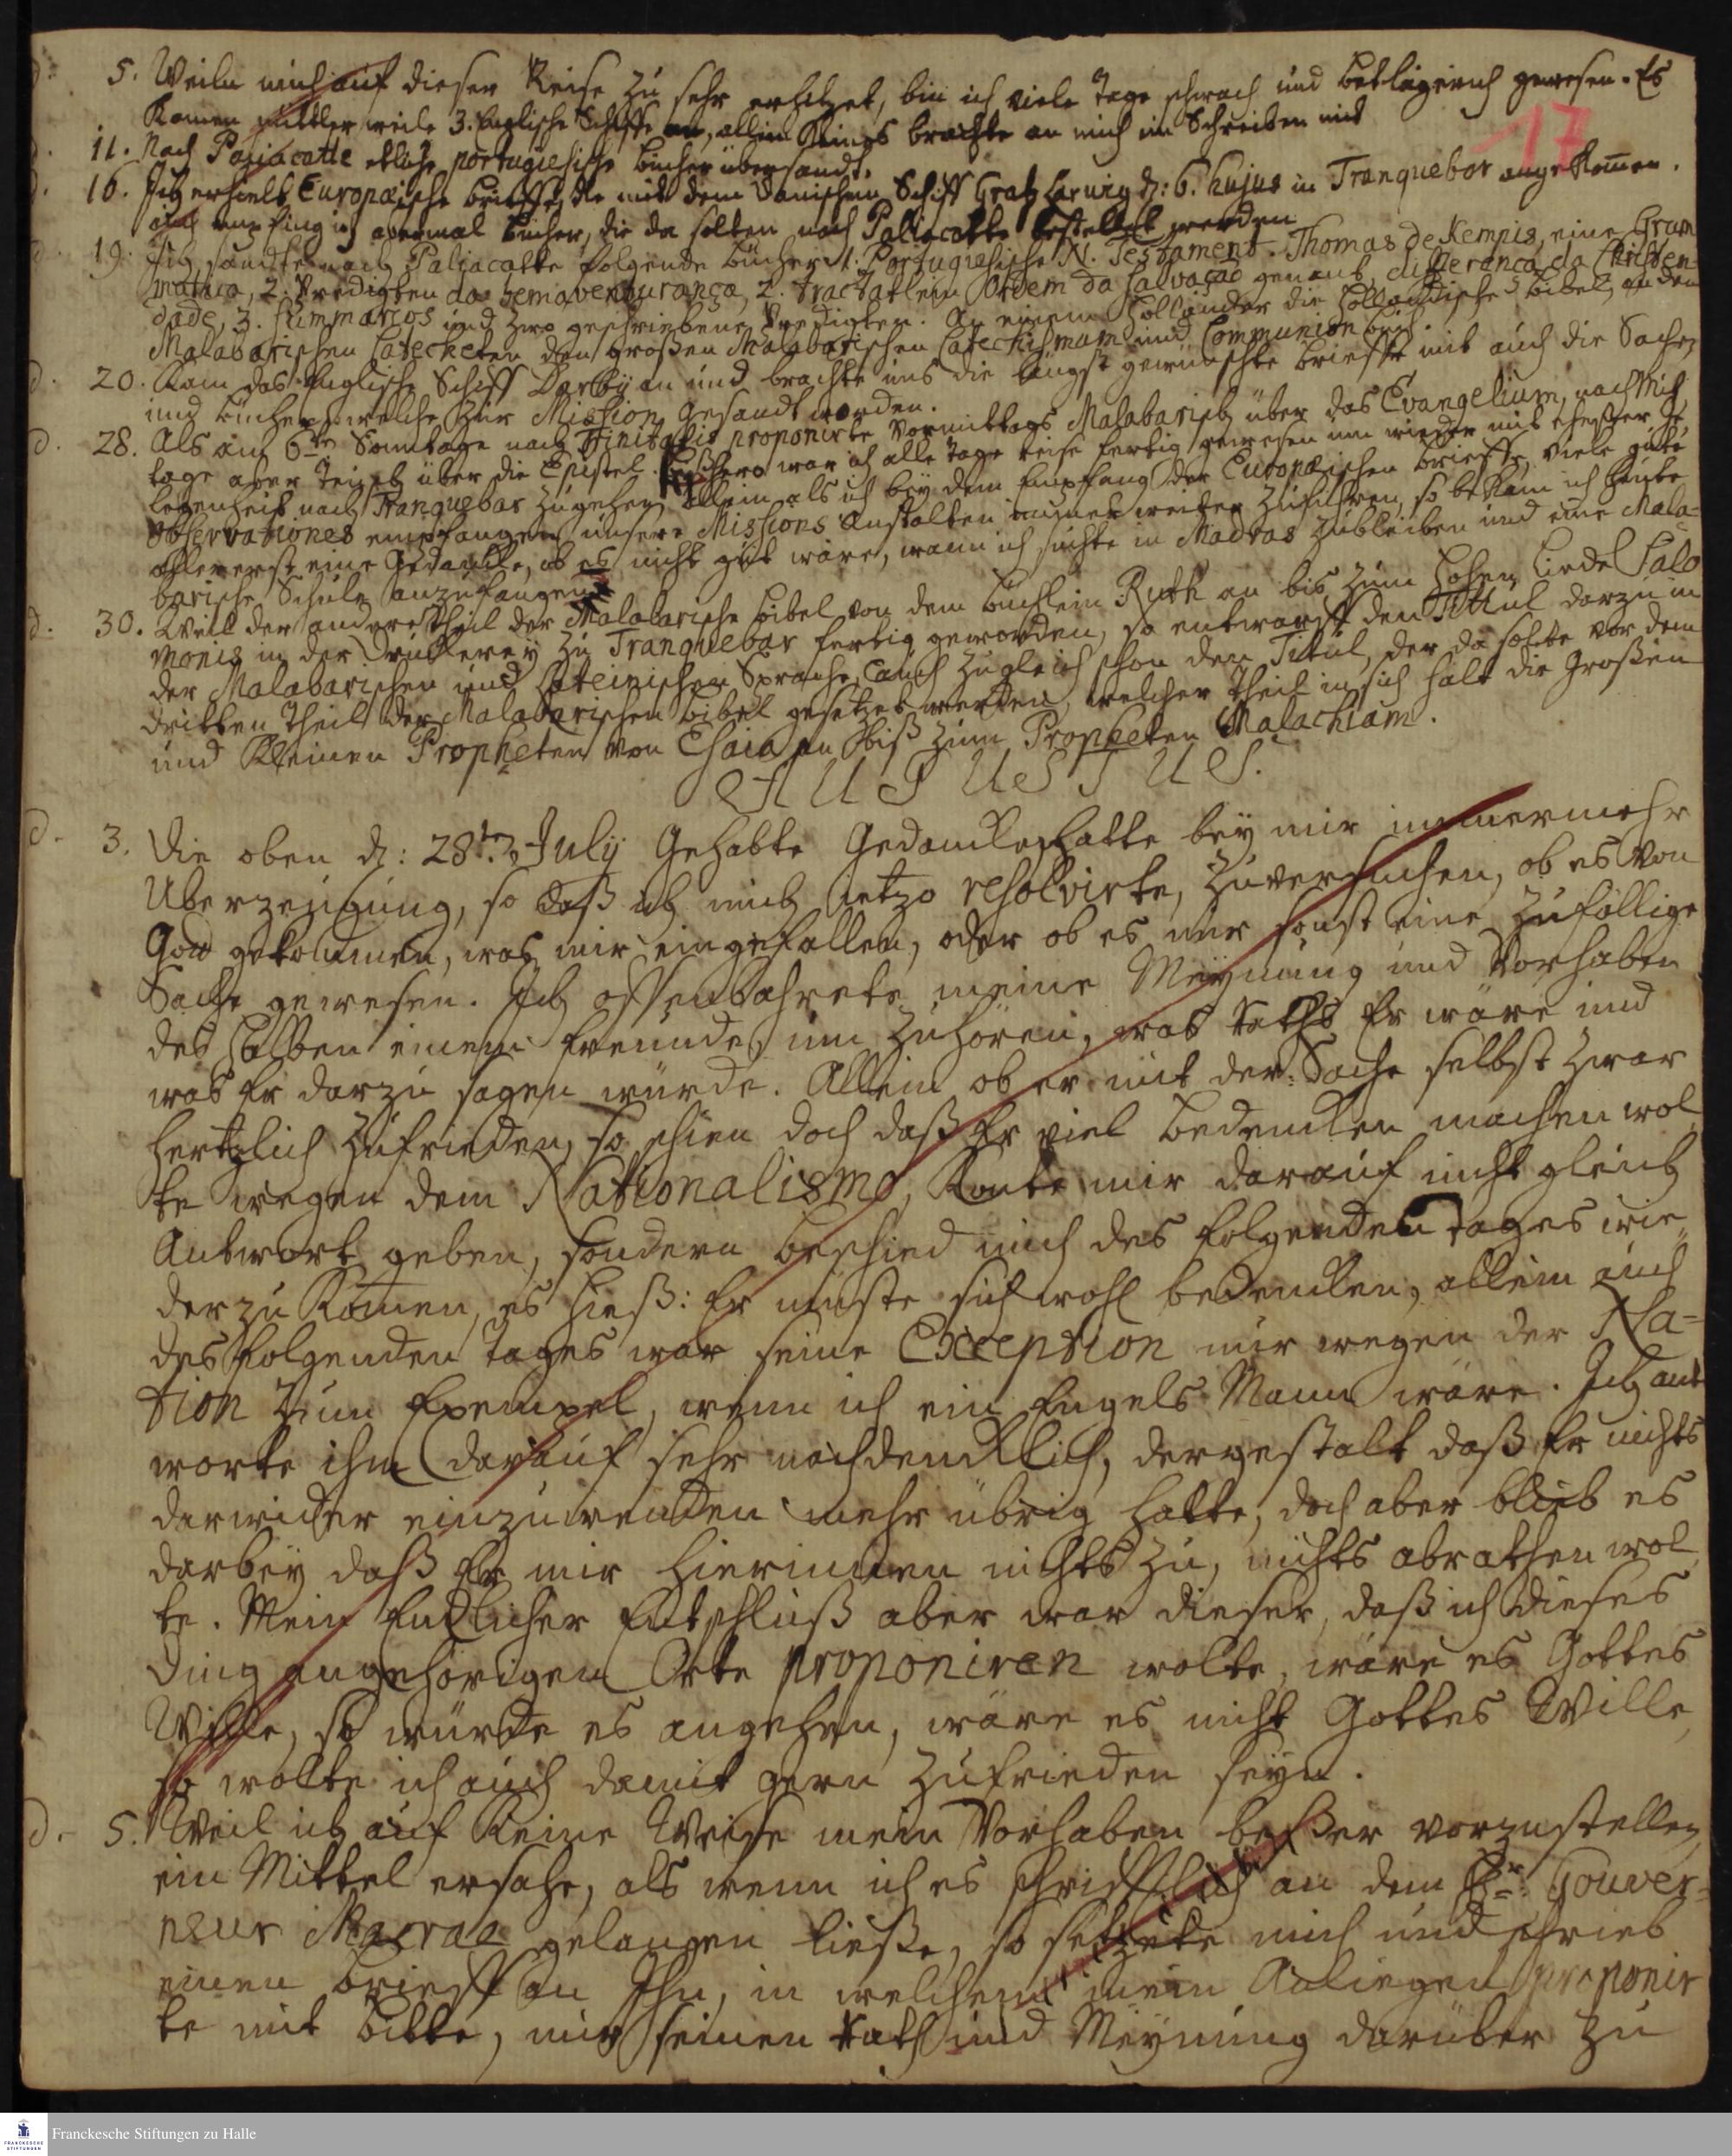 17
d. 5. Weiln mich auf dieser Reise zu sehr erhitzet, bin ich viele Tage schwach und bettlägerich gewesen. Es
kamen mittler weile 3. Englische Schiffe an, allein keines brachte an mich ein Schreiben mit
d. 11. Nach Paliacatte etliche portugiesische bücher übersandt.
d. 16. Ich erhielt Europæische brieffe, die mit dem Dänischen Schiff Graf Larwig d: 6. hujus in Tranquebar angekom̄en.
auch empfing ich abermal bücher, die da solten nach Paliacatte bestellet werden
d. 19. Ich sandte nach Paliacatte folgende bücher 1. Portugiesische N. Testament. Thomas de Kempis, eine Gram
matica, 2. Predigten da bemaventurança, 2. tractatlein Ordem da Salvaçaõ genant, differança da Christen-
dade, 3. summarios und zwo geschriebene Predigten. An einem Holländer die Holländische bibel, an den
Malabarischen Catecheten den großen Malabarischen Catechismum und Communion buch.
d. 20. Kam das Englische Schiff Darby an und brachte uns die längst gewünschte brieffe mit auch die Sachen
und bücher, welche zur Mission gesandt worden.
d. 28. Als am 6ten Sonntage nach Trinitatis proponirte Vormittags Malabarisch über das Evangelium, nach Mit
tage aber Teusch über die Epistel. bißhero war ich alle tage reise fertig gewesen um wieder mit ehester Ge
legenheit nach Tranquebar zu gehen, Allein als ich bey dem Empfang der Europæischen brieffe, viele gute
observationes empfangen unsere Missions Anstalten immer weiter zuführen, so bekam ich heute
allererst eine Gedancke, ob es nicht gut wäre, wann ich suchte in Madras zubleiben und eine Mala-
barische Schule anzufangen.
d. 30. Weil der andere Theil der Malabarische bibel von dem büchlein Ruth an bis zum Hohen Liede Salo
monis in der Druckerey zu Tranquebar fertig geworden, so entwarff den Titul darzu in
der Malabarischen und Lateinischen Sprache, auch zugleich schon den Titul, der da solte vor dem
dritten Theil der Malabarischen bibel gesetzet werden, welcher Theil in sich hält die Großen
und Kleinen Propheten von Esaia an biß zum Propheten Malachiam.
AUGUSTUS.
d. 3. Die oben d: 28ten July Gehabte Gedancke hatte bey mir immermehr
Uberzeugung, so daß ich mich ietzo resolvirte, zuversuchen, ob es von
Gott gekommen, was mir eingefallen, oder ob es nur sonst eine zufällige
Sache gewesen. Ich offenbahrete meine Meynung und Vorhaben
des halben einem Freunde, um zuhören, was raths Er wäre und
was Er darzu sagen würde. Allein ob er mit der Sache selbst zwar
hertzlich zufrieden, so schien doch daß Er viel bedencken machen wol
te wegen dem Nationalismo, Konte mir darauf nicht gleich
Antwort geben, sondern beschied mich des folgenden tages wie
der zu kom̄en, es hieß: Er müste sich wohl bedencken, allein auch
des folgenden tages war seine Exception nur wegen der Na-
tion zum Exempel, wenn ich ein Engels Mann wäre. Ich ant
worte ihm darauf sehr nachdencklich, dergestalt daß Er nichts
darwider einzuwenden mehr übrig hatte, doch aber blieb es
darbey daß Er mir hierinnen nichts zu, nichts abrathen wol
te. Mein Endlicher Entschluß aber war dieser, daß ich dieses
Ding angehörigen Orte proponiren wolte, wäre es Gottes
Wille, so würde es angehen, wäre es nicht Gottes Wille,
so wolte ich auch damit gern zufrieden seyn.
d. 5. Weil ich auf keine Weise mein Vorhaben beßer vorzustellen
ein Mittel ersahe, als wenn ich es schrifftlich an dem Hr: Gouver-
neur Macrae gelangen ließe, so setzete mich und schrieb
einen brieff an Ihn, in welchem mein Anliegen proponir
te mit bitte, mir seinen rath und Meynung darüber zu
Franckesche Stiftungen zu Halle
FRANCKESCHE
STIFTUNGEN